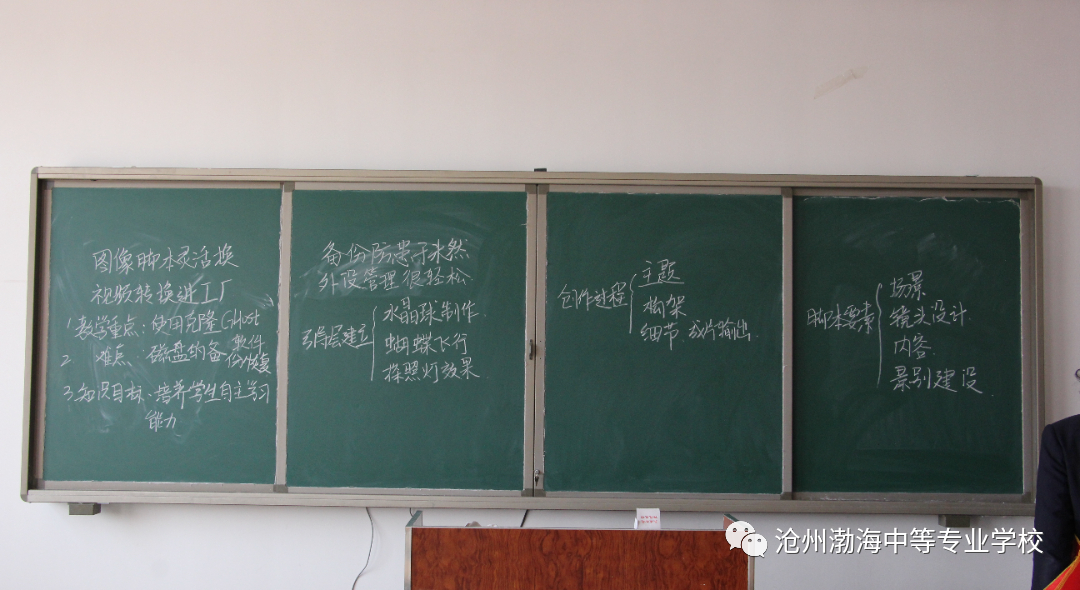 图像脚本灵活换
视频转换进工厂
1 教学重点:使用克隆Ghost
软件
2 难点:磁盘的备份/恢复
3.知识目标、培养学生自主学习
能力
备份防患于未然
外设管理很轻松
引导层建立
水晶球制作.
蝴蝶飞行
探照灯效果
创作过程
主题
构架
细节.成片输出
脚本要素
场景
镜头设计.
内容.
景别建设
沧州渤海中等专业学校